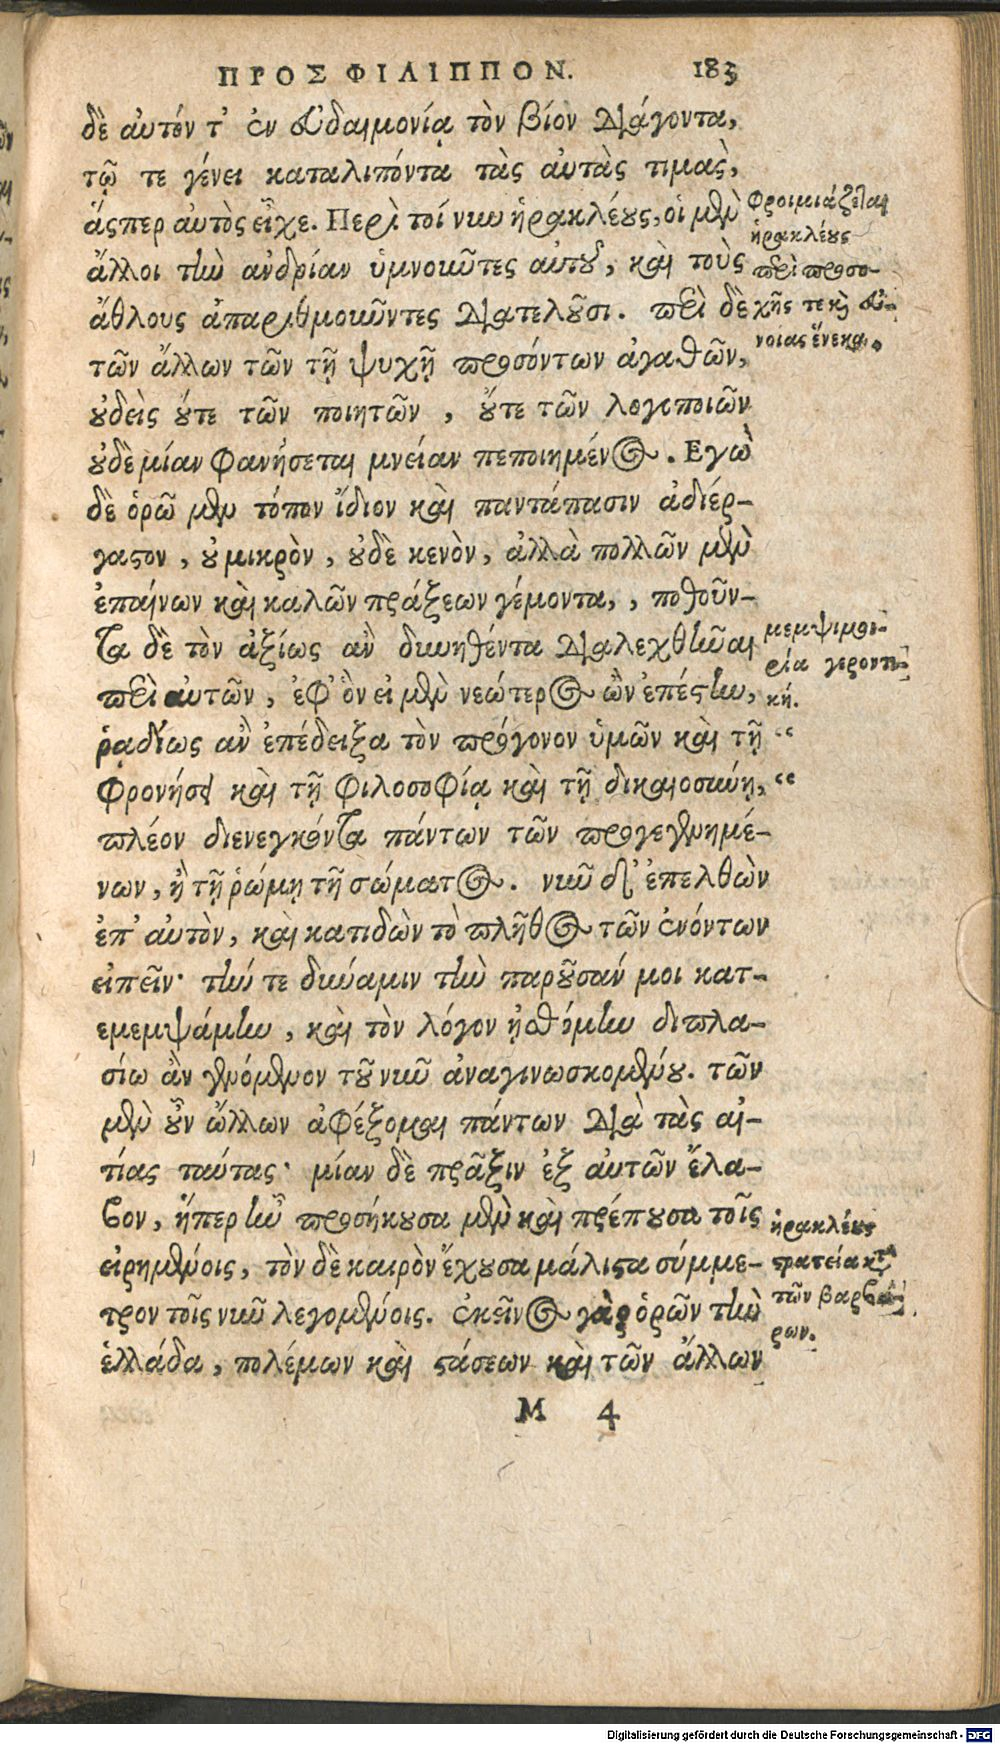 ΠΡΟΣ ΦΙΛΙΠΠΟΝ. 183
δὲ αὐτόν τ' ἐν εὐδαιμονίᾳ τὸν βίον διάγοντα,
τῷ τε γένει καταλιπόντα τὰς αὐτὰς τιμὰς,
ἅσπερ αὐτὸς εἶχε. Περὶ τοίνυν ἡρακλέους, οἱ μὲν
ἄλλοι τὴν ἀνδρίαν ὑμνοῦντες αὐτοῦ, καὶ τοὺς
ἄθλους ἀπαριθμοῦντες διατελοῦσι. περὶ δὲ
τῶν ἄλλων τῶν τῇ ψυχῇ προσόντων ἀγαθῶν,
οὐδεὶς οὔτε τῶν ποιητῶν, οὔτε τῶν λογοποιῶν
οὐδεμίαν φανήσεται μνείαν πεποιημένος. Εγὼ
δὲ ὁρῶ μὲν τόπον ἴδιον καὶ παντάπασιν ἀδιέρ-
γαστον, οὐ μικρὸν, οὐδὲ κενὸν, ἀλλὰ πολλῶν μὲν
ἐπαίνων καὶ καλῶν πράξεων γέμοντα, , ποθοῦν-
τα δὲ τὸν ἀξίως ἂν δυνηθέντα διαλεχθῆναι
περὶ αὐτῶν, ἐφ' ὃν εἰ μὲν νεώτερος ὢν ἐπέστην,
ῥᾳδίως ἂν ἐπέδειξα τὸν πρόγονον ὑμῶν καὶ τῇ
φρονήσει καὶ τῇ φιλοσοφίᾳ καὶ τῇ δικαιοσύνῃ,
πλέον διενεγκόντα πάντων τῶν προγεγενημέ-
νων, ἢ τῇ ῥώμῃ τῇ σώματος. νῦν δ' ἐπελθὼν
ἐπ' αὐτὸν, καὶ κατιδὼν τὸ πλῆθος τῶν ἐνόντων
εἰπεῖν· τήν τε δύναμιν τὴν παροῦσάν μοι κατ-
εμεμψάμην, καὶ τὸν λόγον ᾐσθόμην διπλα-
σίω ἂν γενόμενον τοῦ νῦν ἀναγινωσκομένου. τῶν
μὲν οὖν ἄλλων ἀφέξομαι πάντων διὰ τὰς αἰ-
τίας ταύτας· μίαν δὲ πρᾶξιν ἐξ αὐτῶν ἔλα-
βον, ἥπερ ἦν προσήκουσα μὲν καὶ πρέπουσα τοῖς
εἰρημένοις, τὸν δὲ καιρὸν ἔχουσα μάλιστα σύμμε-
τρον τοῖς νῦν λεγομένοις. ἐκεῖνος γὰρ ὁρῶν τὴν
ἑλλάδα, πολέμων καὶ στάσεων καὶ τῶν ἄλλων
M 4
Φροιμιάζεται
ἡρακλέους
περὶ προσο-
χῆς τε καὶ εὐ-
νοίας ἕνεκα.
μεμψιμοι-
ρία γεροντι-
κή.
“
“
ἡρακλέους
στρατεία κατὰ
τῶν βαρβά-
ρων.
Digitalisierung gefördert durch die Deutsche Forschungsgemeinschaft - DFG